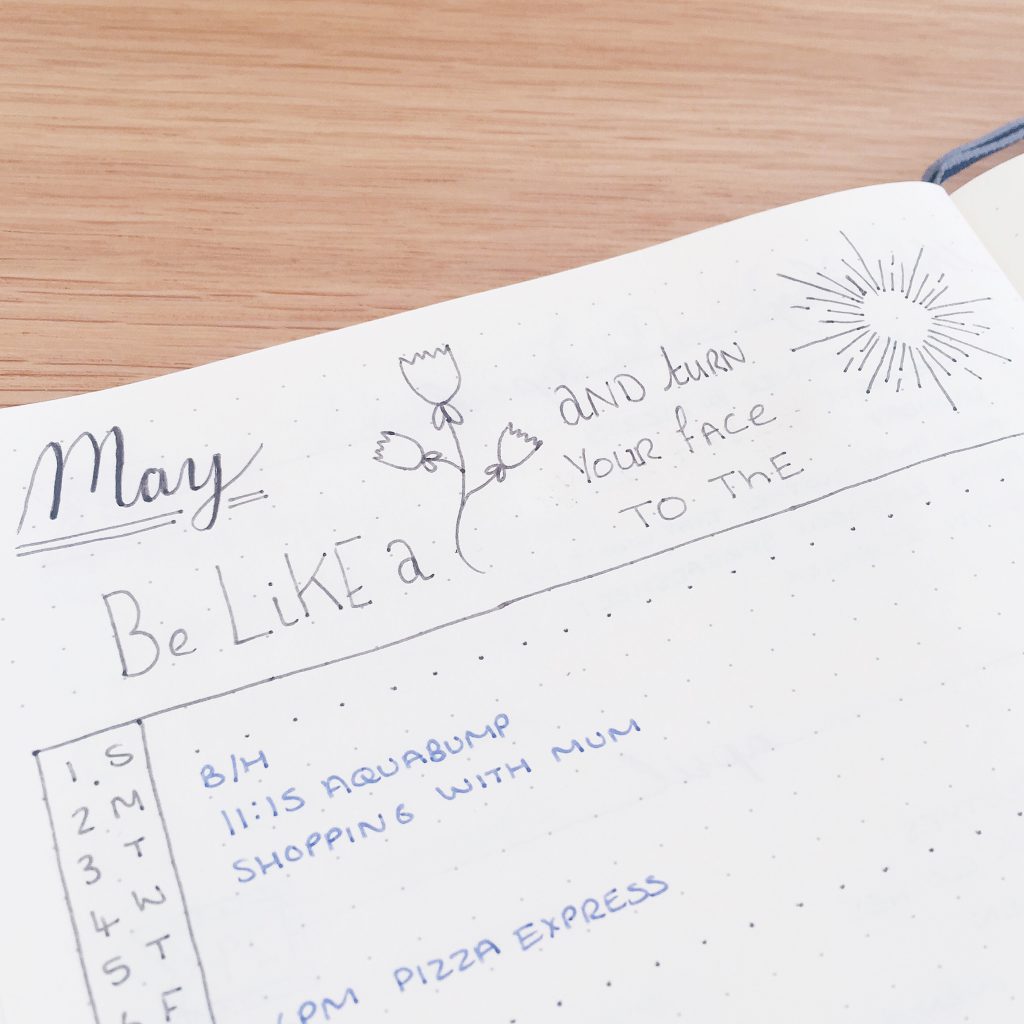 May
Be LiKE a
AND turn
YOUR fACe
TO ThE
1. S
2 M B/H
3 T 11:15 AQUABUMP
4 W SHOPPING WITH MUM
5 T
F
PM PIZZA EXPRESS